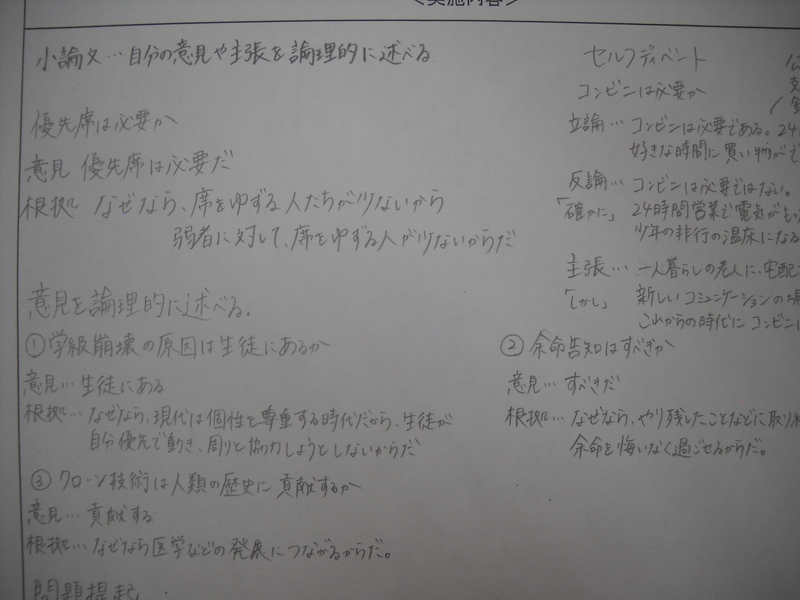 <実施内容>
小論文…自分の意見や主張を論理的に述べる
優先席は必要か
意見 優先席は必要だ
根拠 なぜなら、席をゆずる人たちが少ないから
弱者に対して、席をゆずる人が少ないからだ
意見を論理的に述べる。
①学級崩壊の原因は生徒にあるか
意見…生徒にある
根拠…なぜなら、現代は個性を尊重する時代だから、生徒が
自分優先で動き、周りと協力しようとしないからだ
③クローン技術は人類の歴史に貢献するか
意見…貢献する
根拠…なぜなら医学などの発展につながるからだ。
問題提起
セルフディベント
コンビニは必要か
立論…コンビニは必要である。24
好きな時間に買い物がで
反論…コンビニは必要ではない。
「確かに」24時間営業で電気がもっ
少年の非行の温床になる
主張…一人暮らしの老人に、宅配
「しかし」新しいコミュニケーションの場
これからの時代にコンビニは
②余命告知はすべきか
意見…すべきだ
根拠…なぜなら、やり残したことなどに取り
余命を悔いなく過ごせるからだ。